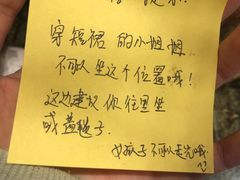 穿短裙的小姐姐
不可以坐这个位置哦!
这边建议你往里坐
或盖毯子.
女孩子不可以走光哦